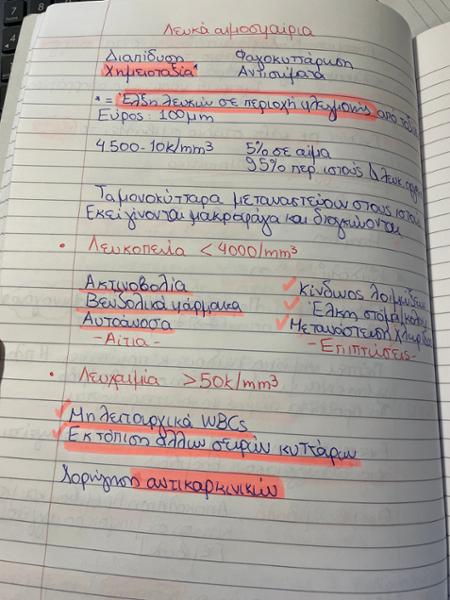 Λευκά αιμοσφαίρια
Διαπίδυση Φαγοκυττάρωση
Χημειοταξία* Αντισώματα
* = Έλξη λευκών σε περιοχή φλεγμονής από
Εύρος: 100μm
4.500-10k/mm³ 5% σε αίμα
95% περ. ιστούς
Τα μονοκύτταρα μεταναστεύουν στους ιστούς
Εκεί γίνονται μακροφάγα και διογκώνονται
• Λευκοπενία < 4000/mm³
Ακτινοβολία ✓ Κίνδυνος λοιμώξεων
Βενζολικά φάρμακα ✓ Έλκη στόμα,
Αυτοάνοσα ✓ Μετανάστευση
-Αίτια- -Επιπτώσεις-
• Λευχαιμία >50k/mm³
✓ Μη λειτουργικά WBCs
✓ Εκτόπιση άλλων σειρών κυττάρων
Χορήγηση αντικαρκινικών